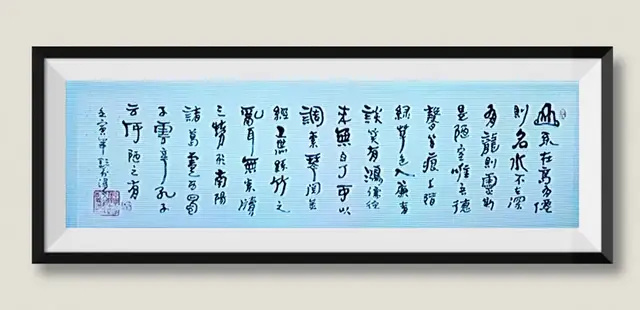 山不在高有僊
則名水不在深
有龍則靈斯
是陋室唯吾德
馨苔痕上階
緑草色入簾青
談笑有鴻儒往
来無白丁可以
調素琴閱金
經無絲竹之
亂耳無案牘
之勞形南陽
諸葛廬西蜀
子雲亭孔子
云何陋之有
壬寅年